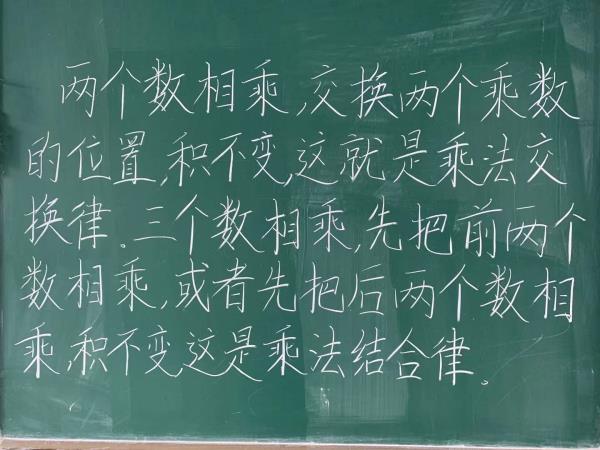 两个数相乘,交换两个乘数
的位置,积不变,这就是乘法交
换律。三个数相乘,先把前两个
数相乘,或者先把后两个数相
乘,积不变这是乘法结合律。